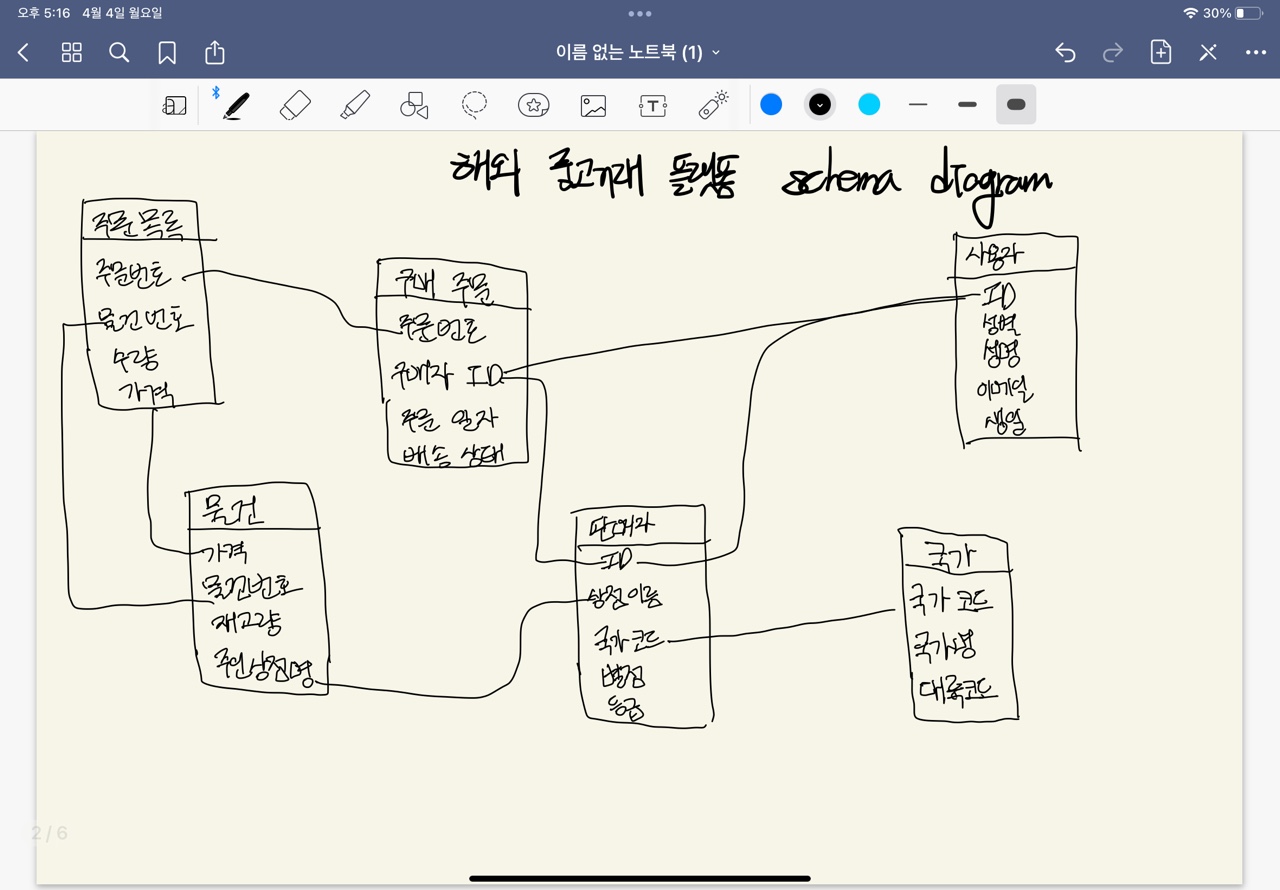 오후 5:16 4월 4일 월요일
30%
이름 없는 노트북 (1)
해외 중고거래 플랫폼 schema diagram
주문 목록
주문번호
물건번호
수량
가격
구매 주문
주문 번호
구매자 ID
주문 일자
배송 상태
사용자
ID
성별
성명
이메일
생일
물건
가격
물건번호
재고량
주인상점명
판매자
ID
상점이름
국가코드
별점
등급
국가
국가 코드
국가명
대륙코드
2 / 6